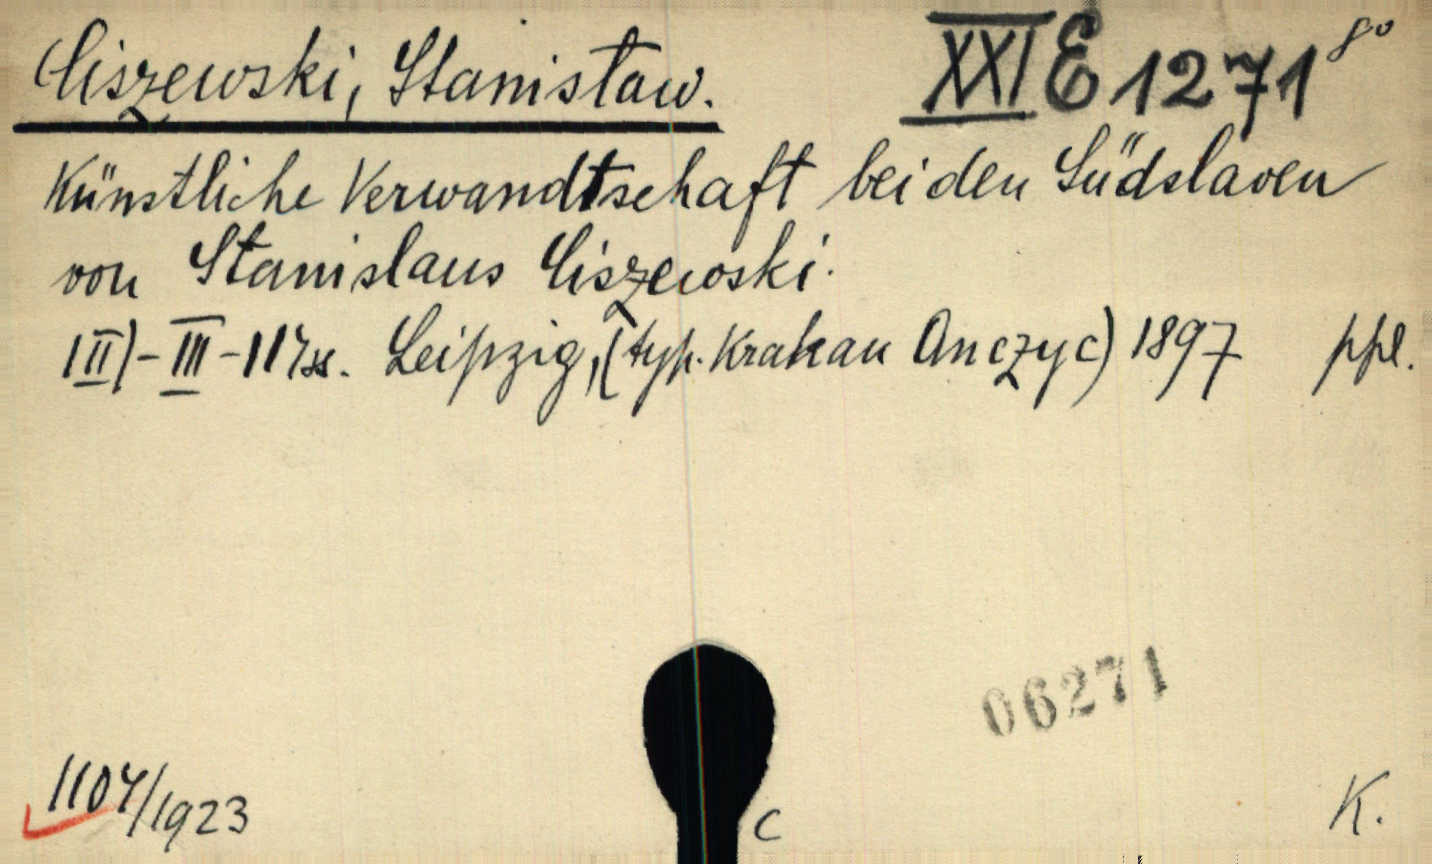 Ciszewski, Stanisław. XXI E 1271 8º
Künstliche Verwandtschaft bei den Südslaven
von Stanislaus Ciszewski.
III)-III-114ss. Leipzig, (typ. Krakau Anczyc) 1897 ppl.
06271
1104/1923
C
K.